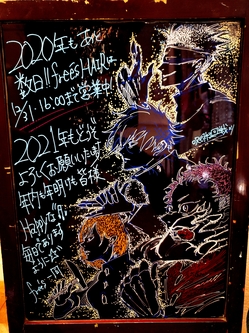 2020年もあと
数日!! frees HAIRは
12/31・16:00まで営業中
2021年もどうぞ
よろしくお願いいた
年内も年明けも皆様
Happyな
毎日であります
ように☆